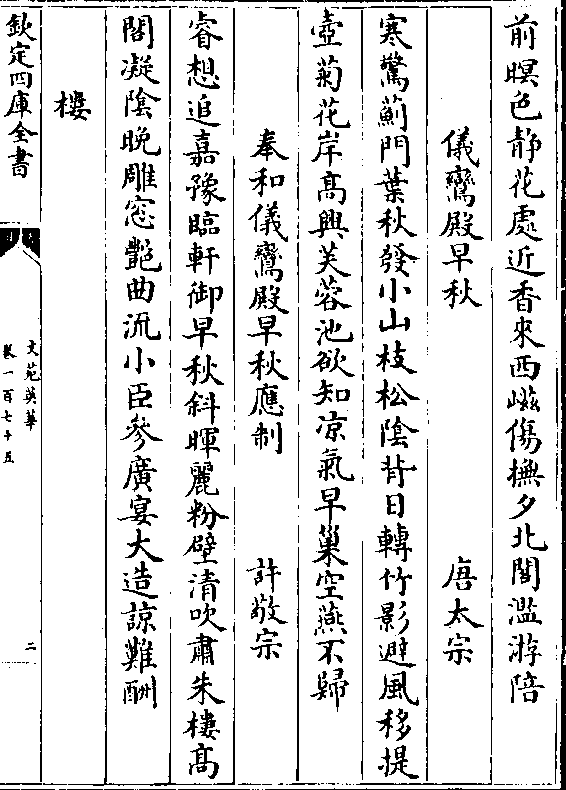 前暝色静花處近香來西﨑傷撫夕北閣濫游陪
儀鸞殿早秋 唐太宗
寒驚薊門葉秋發小山枝松陰背日轉竹影避風移提
壺菊花岸髙興芙蓉池欲知凉氣早巢空燕不歸
奉和儀鸞殿早秋應制 許敬宗
睿想追嘉豫臨軒御早秋斜暉麗粉壁清吹肅朱樓髙
閣凝陰晚雕窓艶曲流小臣參廣宴大造諒難酬
樓
欽定四庫全書
文苑英華
卷一百七十五
二